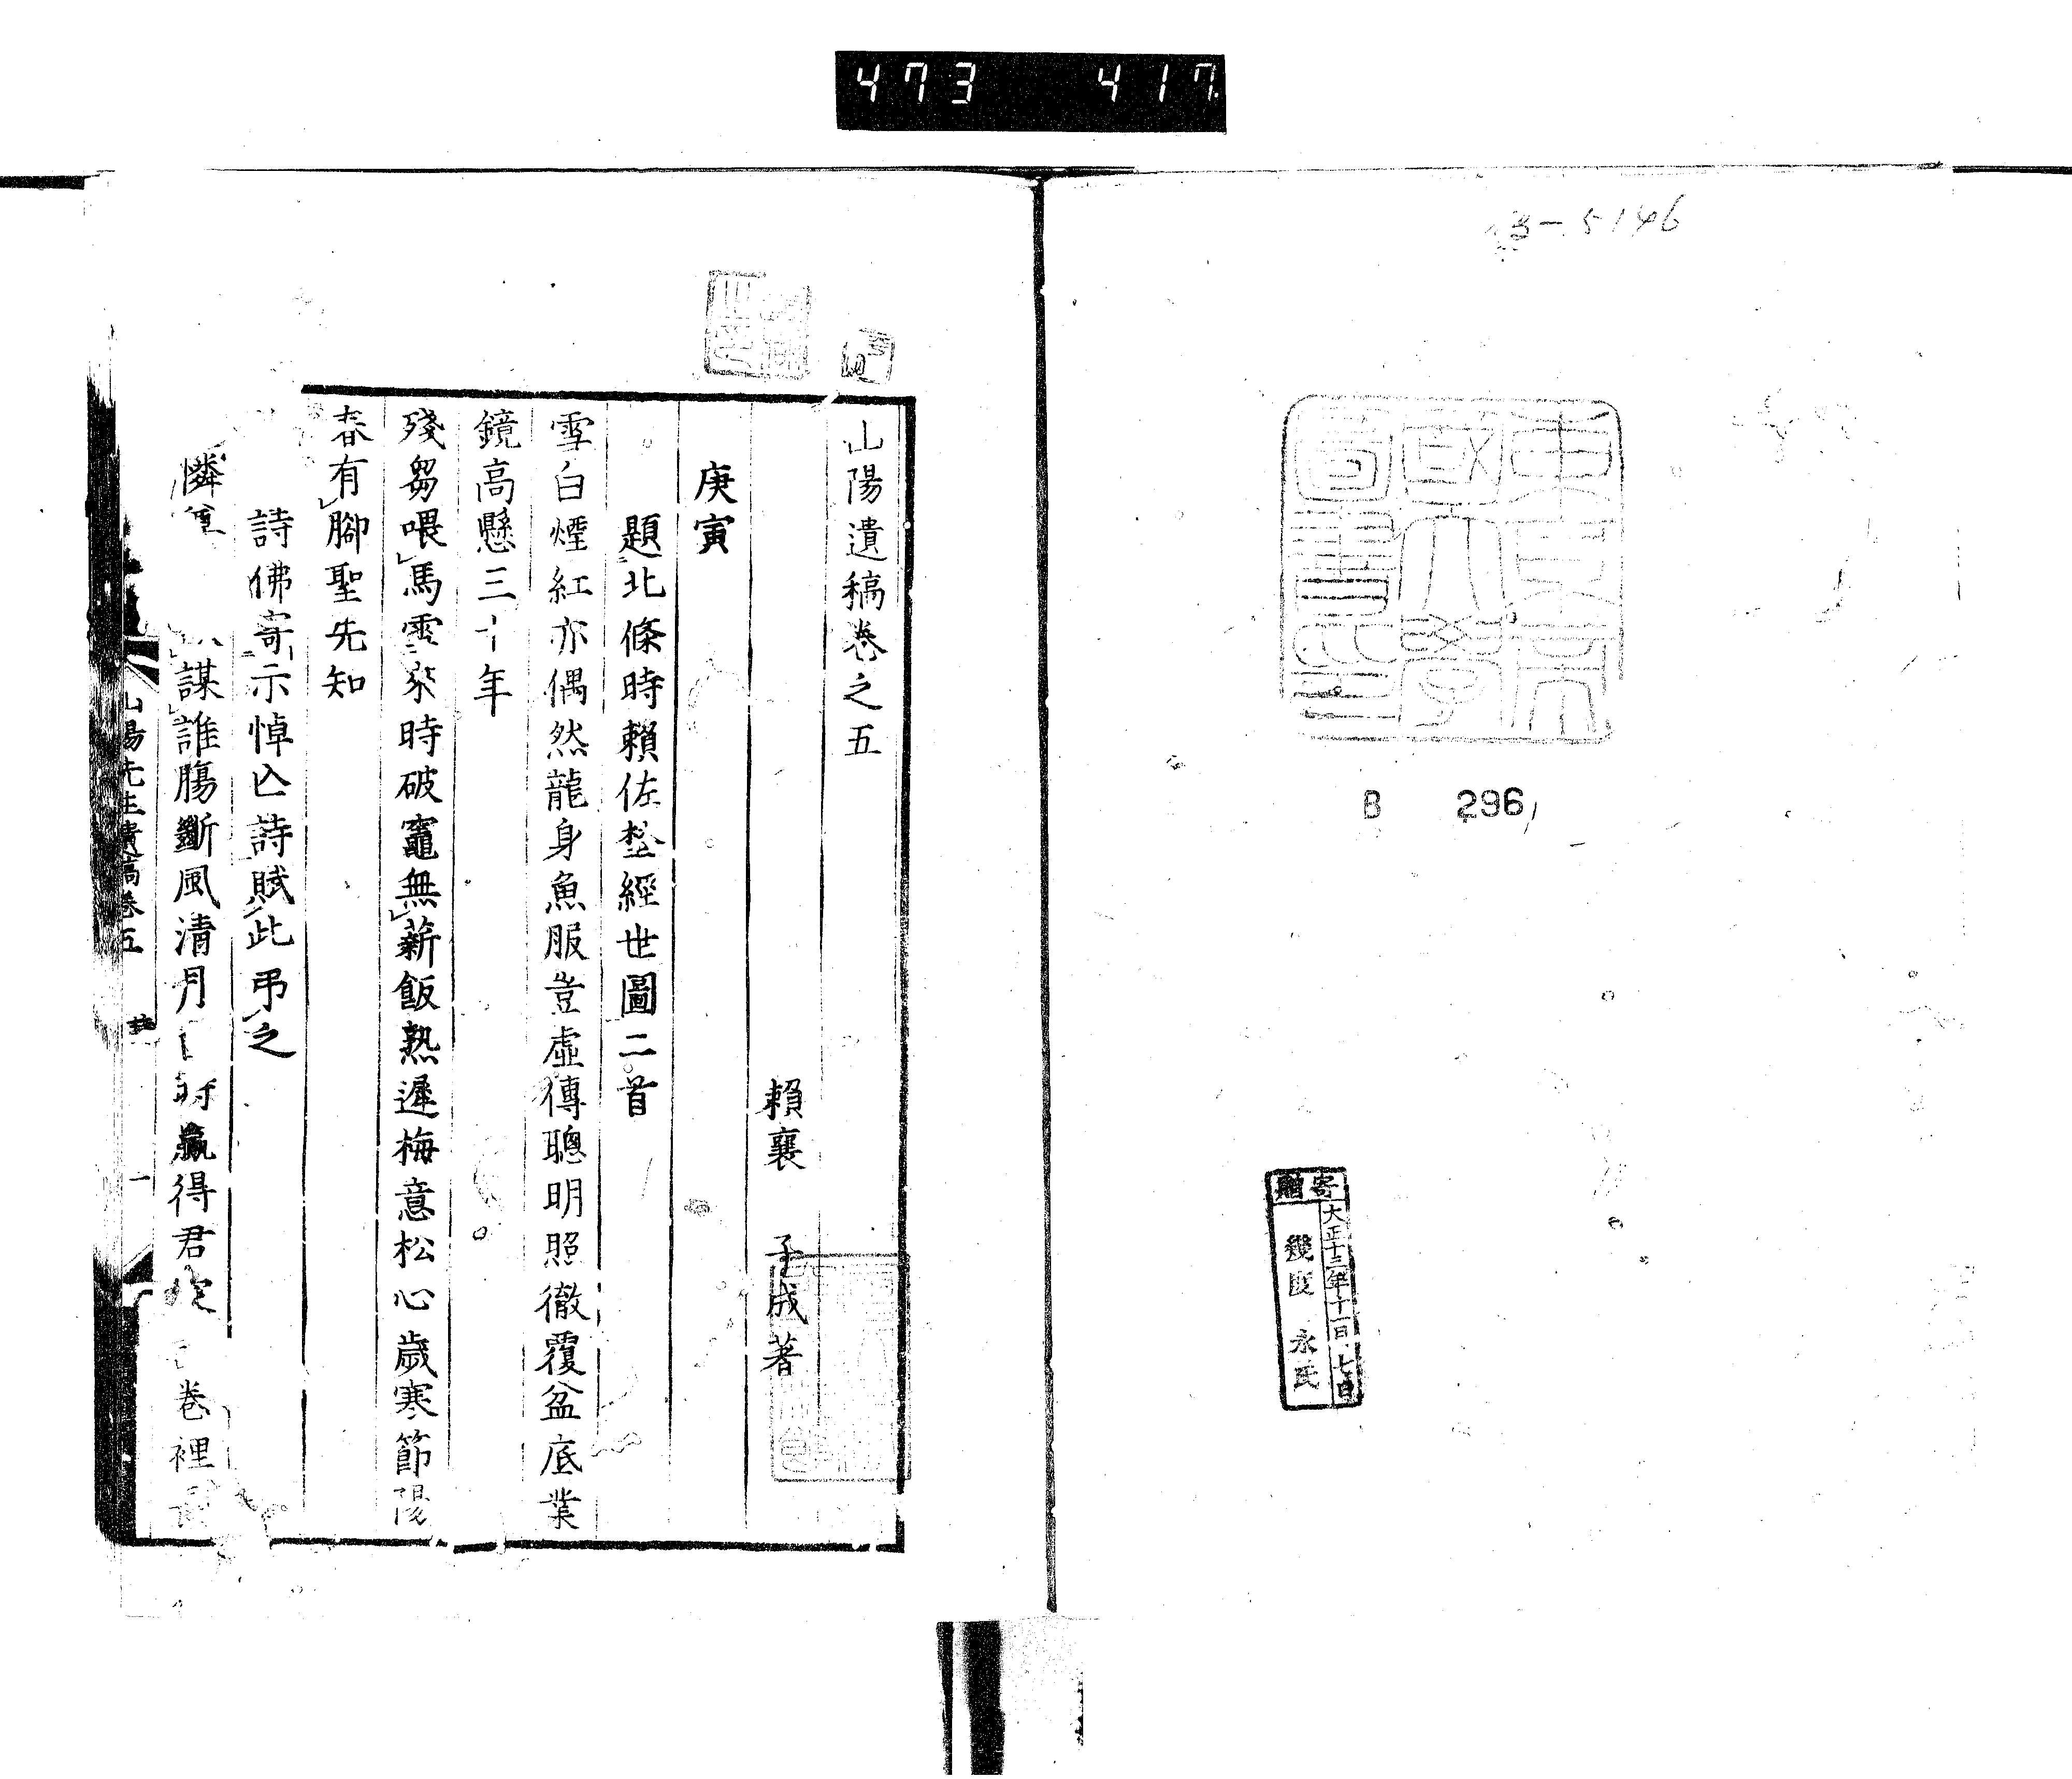 473 417
B-5146
東京帝
國大學
圖書印
B 296
寄贈
大正十三年十一月七日
幾度 永氏
山陽遺稿卷之五
賴襄 子成著
庚寅
題北條時賴佐埜經世圖二首
雪白煙紅亦偶然龍身魚服豈虛傳聰明照徹覆盆底業
鏡高懸三十年
殘芻喂馬雪來時破竈無薪飯熟遲梅意松心歲寒節陽
春有腳聖先知
詩佛寄示悼亡詩賦此弔之
憐 謀誰腸斷風清月 時贏得君 卷裡
山陽先生遺稿卷五
一